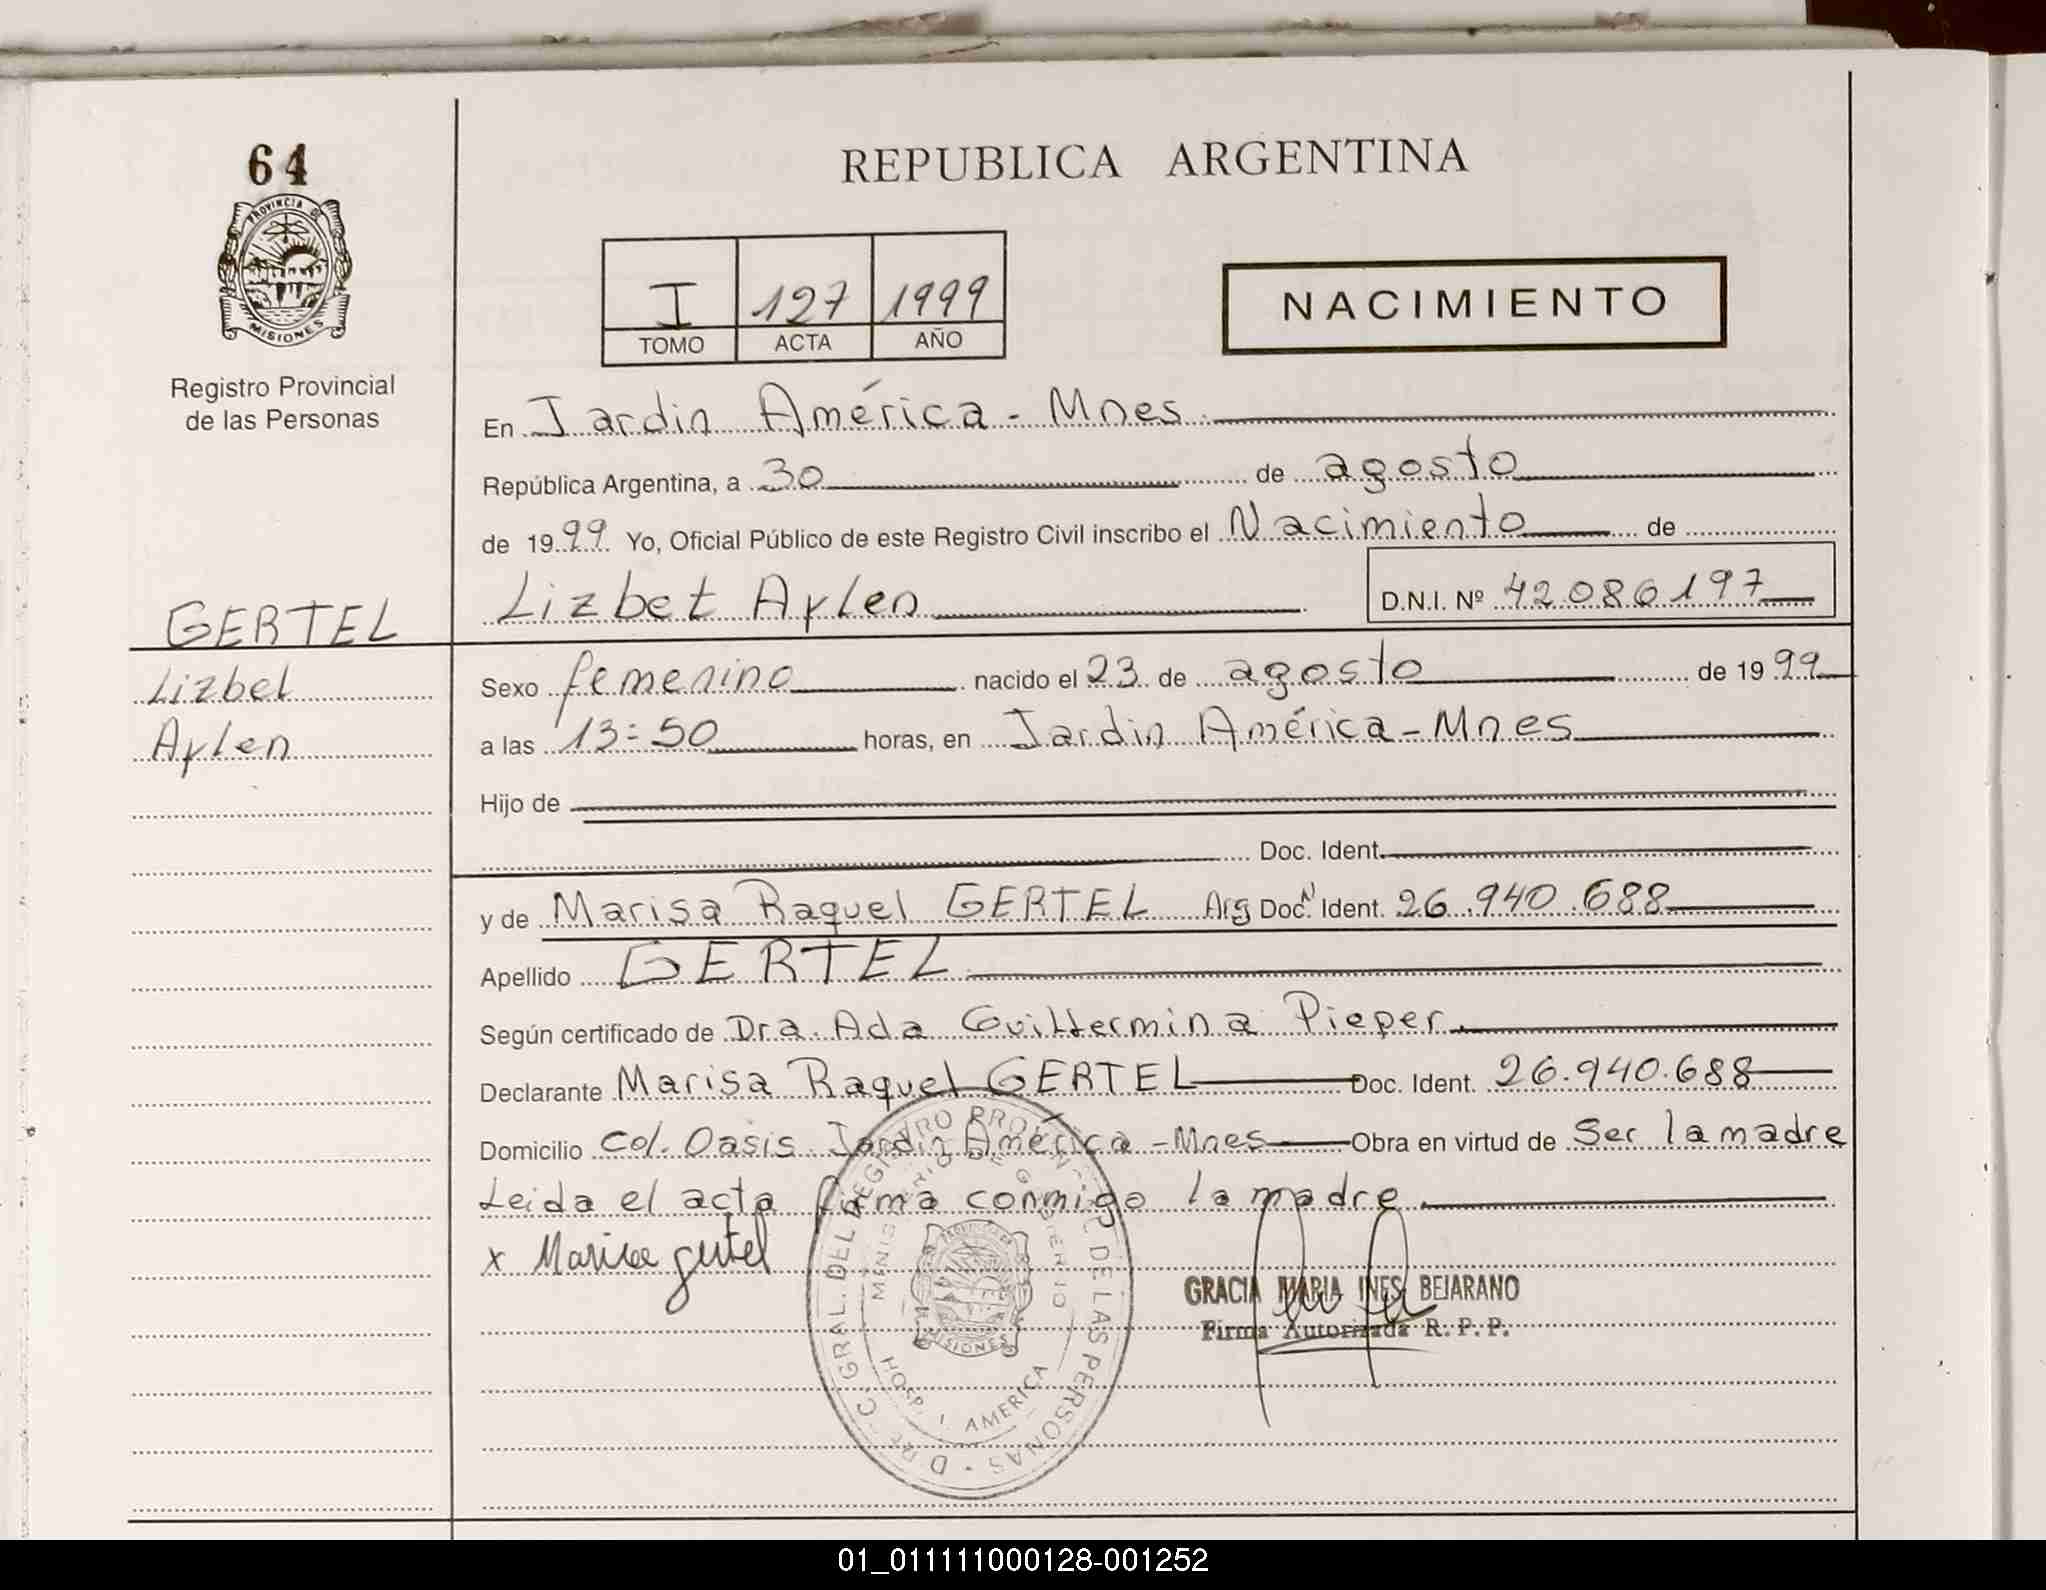 64
PROVINCIA DE
MISIONES
Registro Provincial
de las Personas
REPUBLICA ARGENTINA
I 127 1999
TOMO ACTA AÑO
NACIMIENTO
En Jardin América - Mnes.
República Argentina, a 30 de agosto
de 1999 Yo, Oficial Público de este Registro Civil inscribo el Nacimiento de
Lizbet Aylen D.N.I. Nº 42086197
GERTEL
Lizbet
Aylen
Sexo femenino nacido el 23 de agosto de 1999
a las 13:50 horas, en Jardin América - Mnes
Hijo de
Doc. Ident.
y de Marisa Raquel GERTEL Arg Doc. N Ident. 26.940.688
Apellido GERTEL
Según certificado de Dra. Ada Guillermina Pieper
Declarante Marisa Raquel GERTEL Doc. Ident. 26.940.688
Domicilio Col. Oasis Jardin América - Mnes Obra en virtud de Ser la madre
Leida el acta firma conmigo la madre
x Marisa gertel
GRACIA MARIA INES BEJARANO
Firma Autorizada R. P. P.
DIREC. GRAL. DEL REGISTRO PROVINCIAL DE LAS PERSONAS
MINISTERIO DE GOBIERNO
MISIONES
HOSP. J. AMERICA
01_011111000128-001252